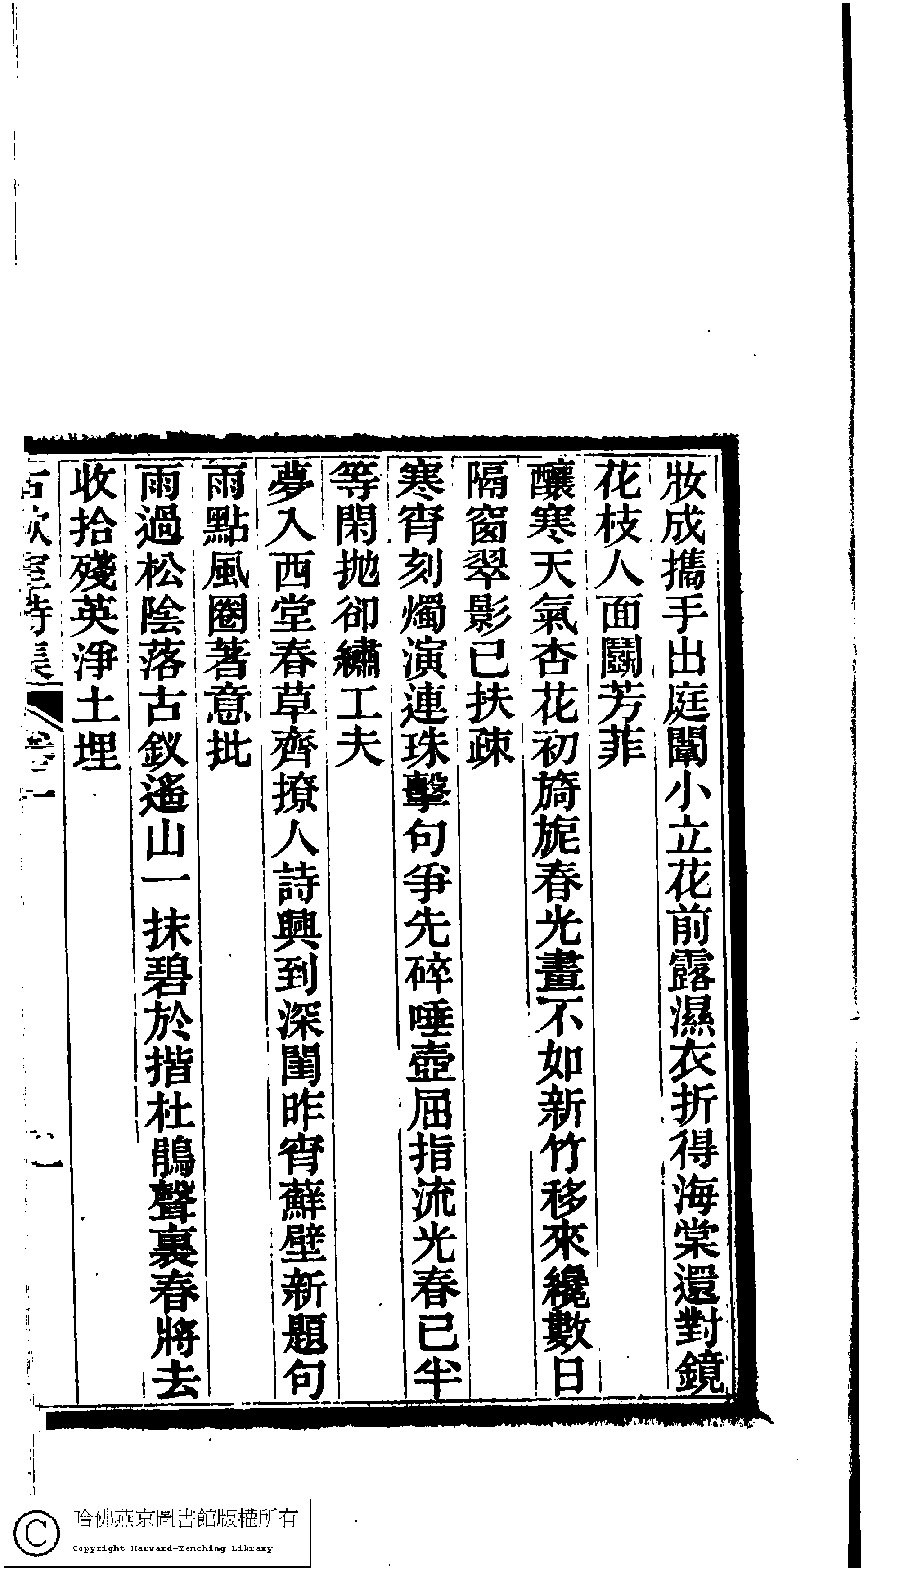 妝成攜手出庭闈小立花前露濕衣折得海棠還對鏡
花枝人面鬬芳菲
釀寒天氣杏花初旖旎春光畫不如新竹移來纔數日
隔窗翠影已扶疎
寒宵刻燭演連珠擊句爭先碎唾壺屈指流光春已半
等閑拋卻繡工夫
夢入西堂春草齊撩人詩興到深閨昨宵蘚壁新題句
雨點風圈著意批
雨過松陰落古釵遙山一抹碧於揩杜鵑聲裏春將去
收拾殘英淨土埋
哈佛燕京圖書館版權所有
Copyright Harvard-Yenching Library